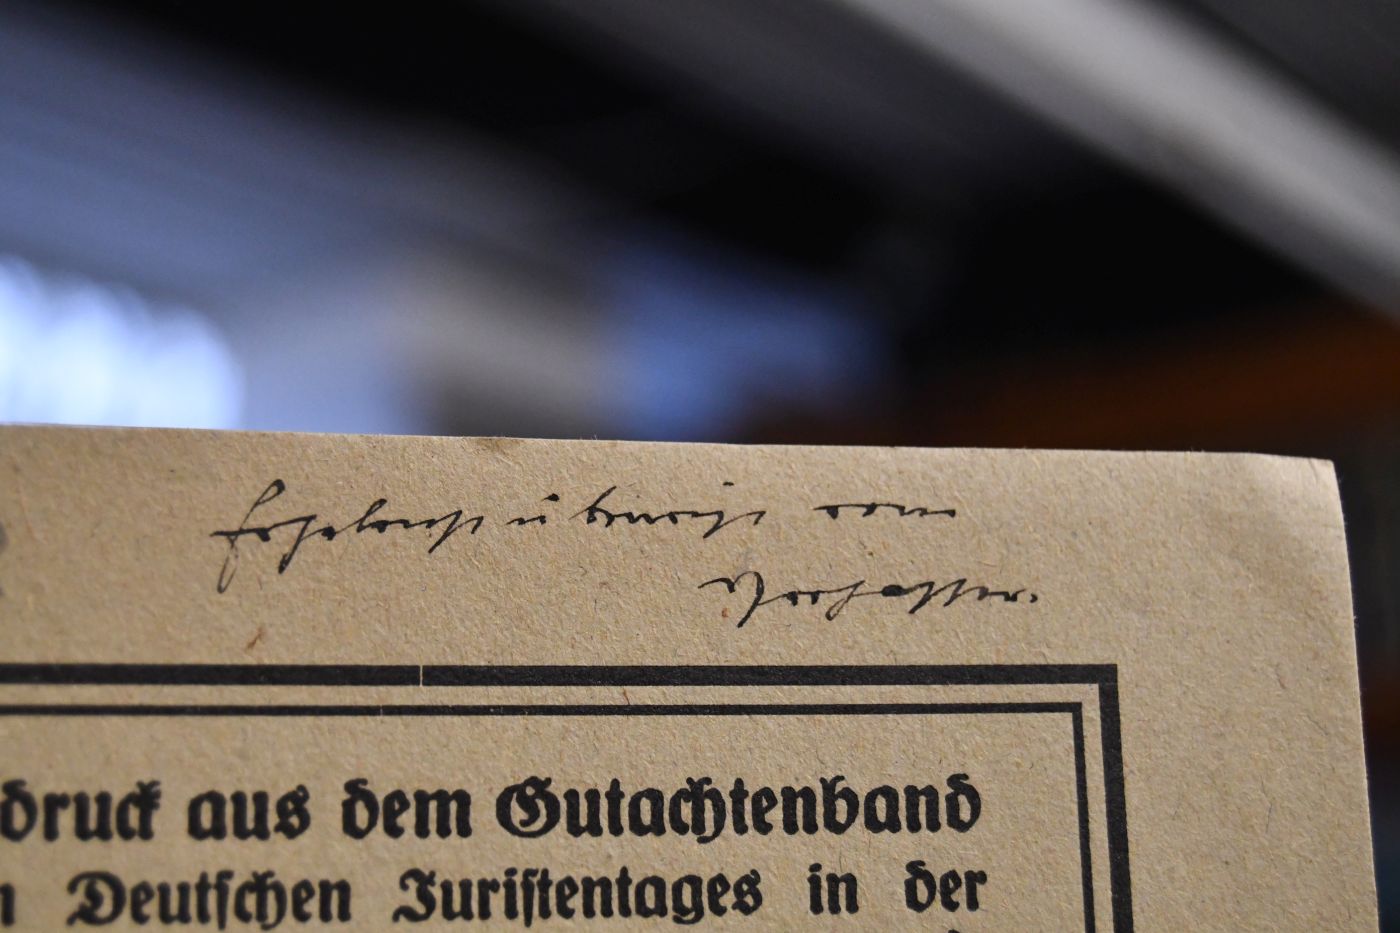 Ergebenst überreicht vom
Verfasser.
druck aus dem Gutachtenband
n Deutschen Juristentages in der